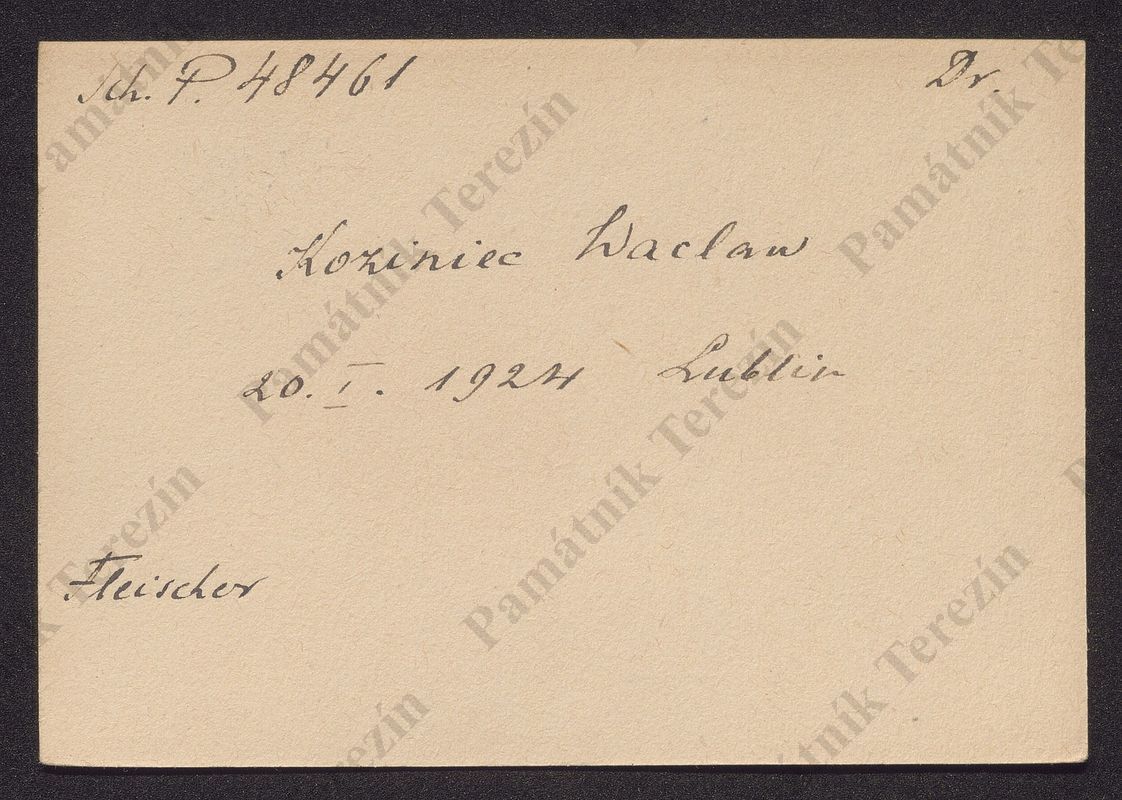 Sch. P. 48461 Dr.
Koziniec Waclaw
20. I. 1924 Lublin
Fleischer
Památník Terezín